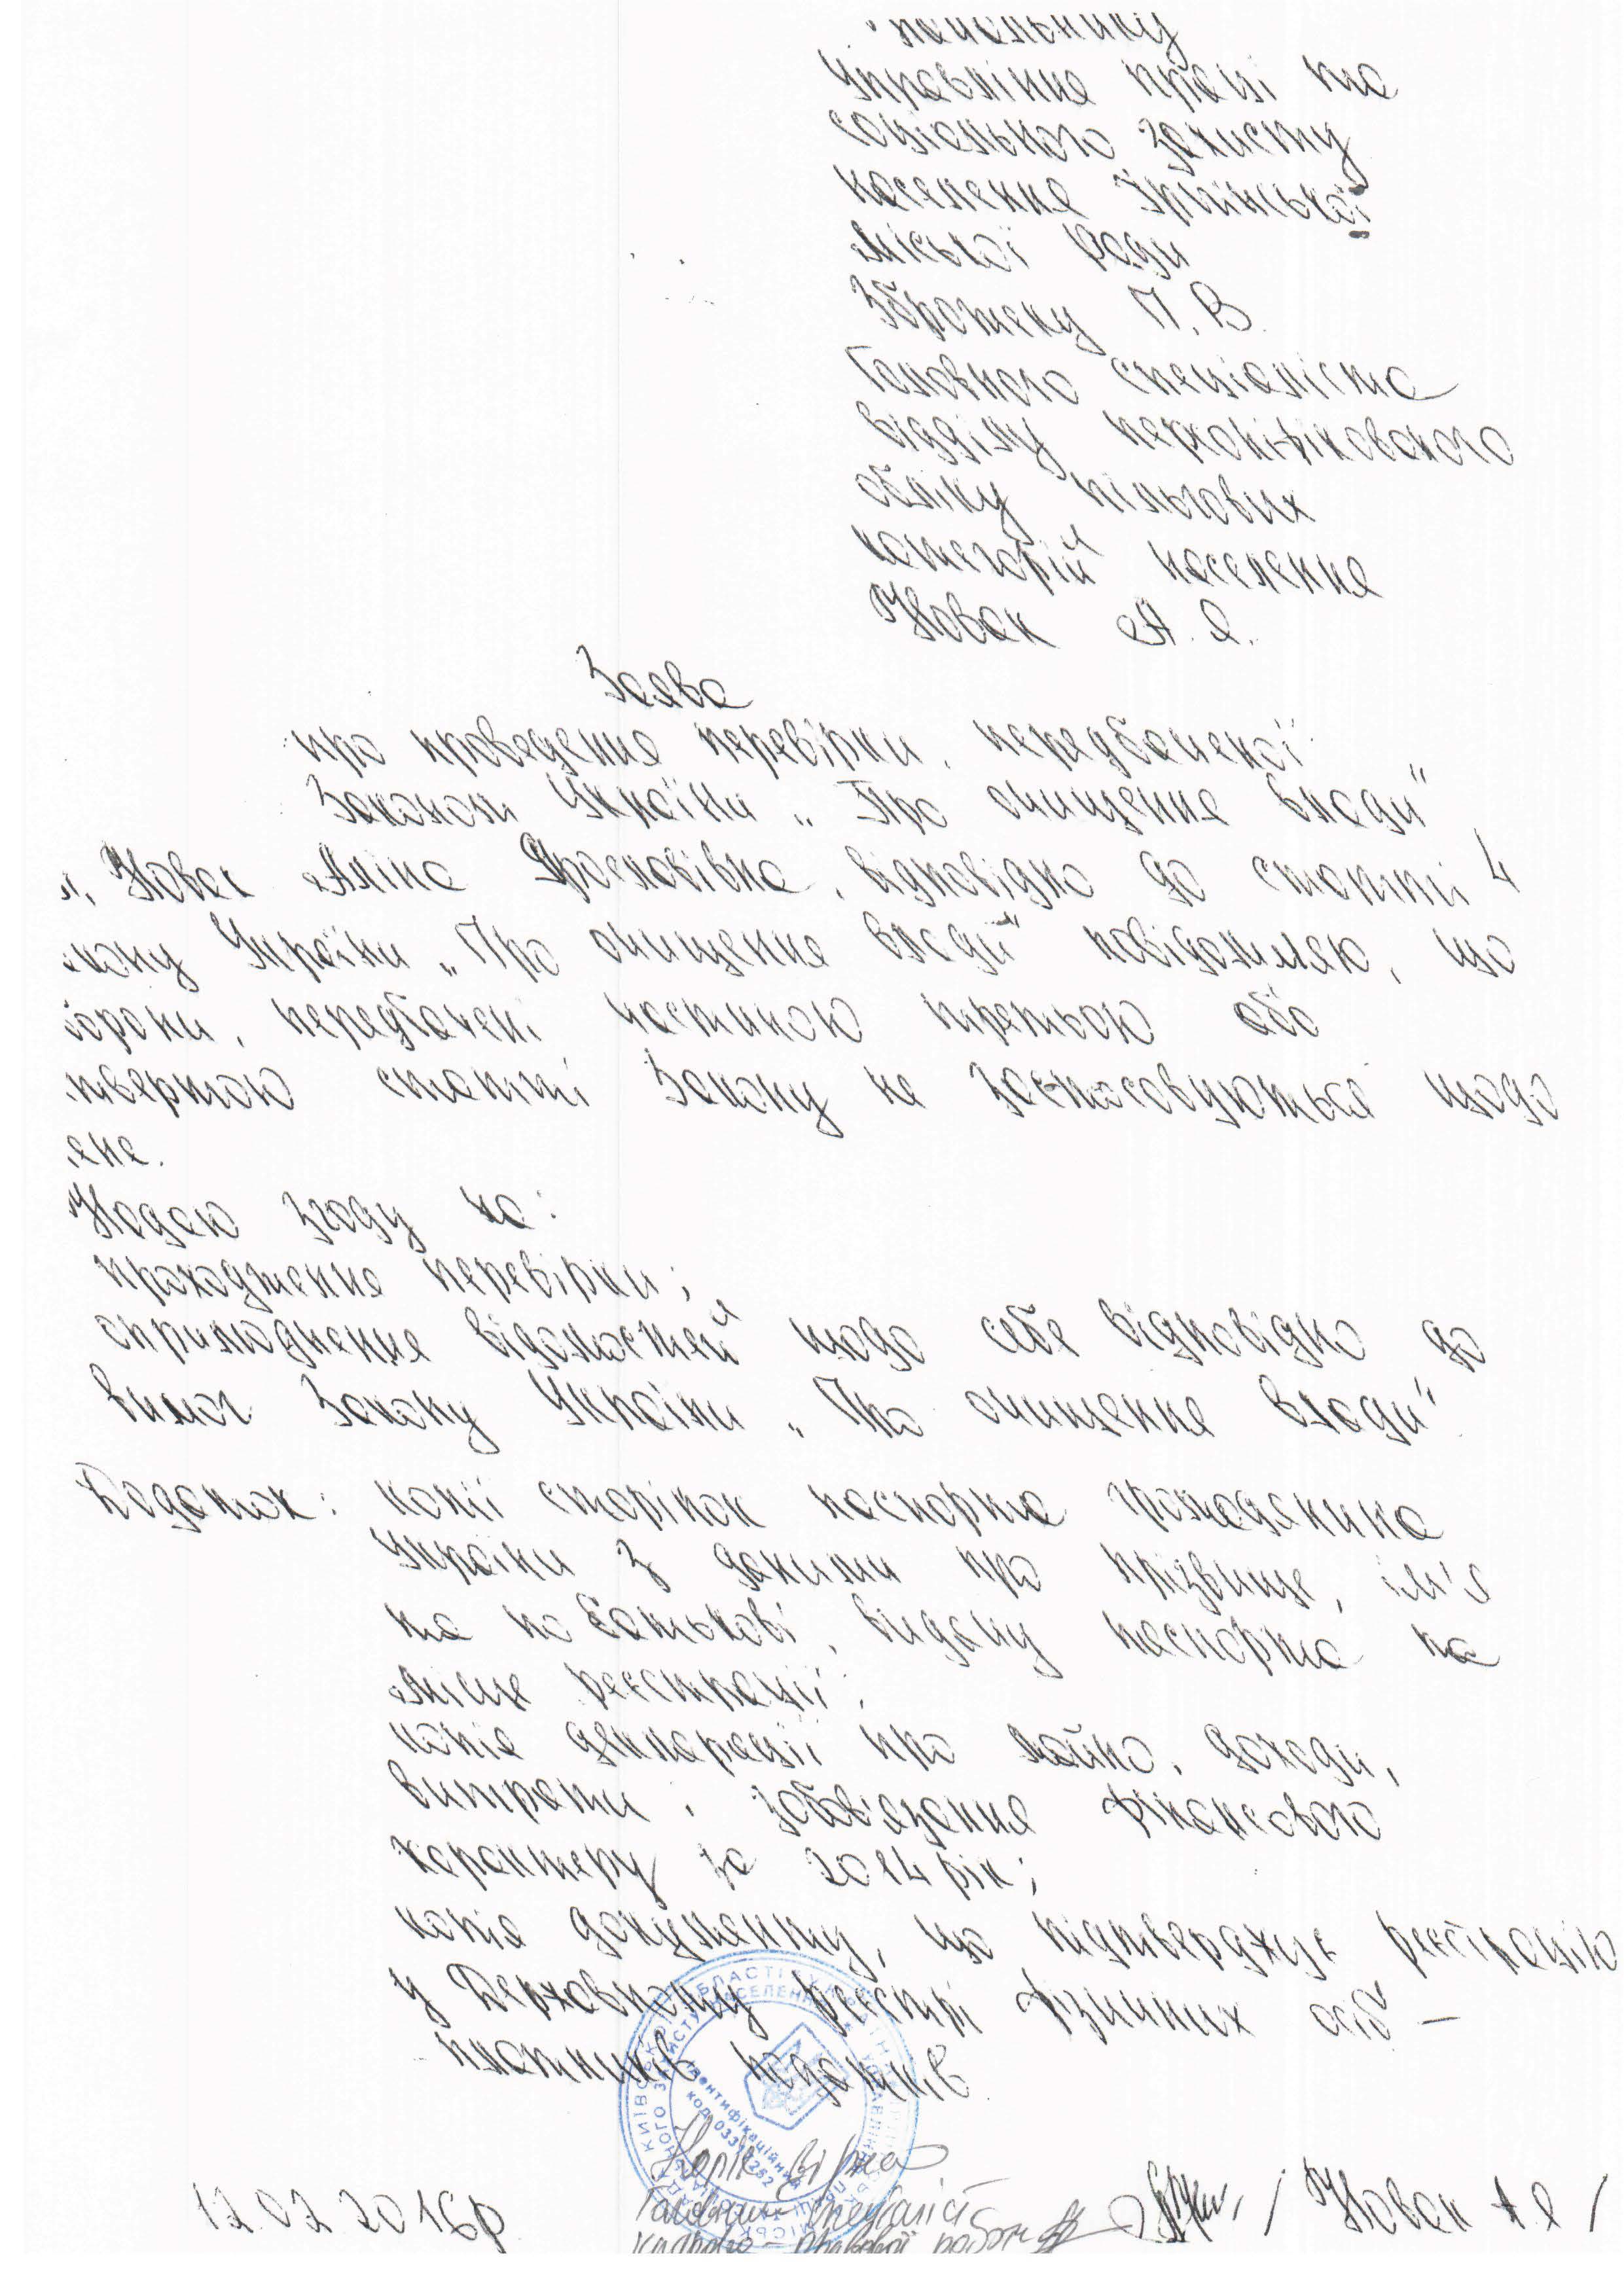 Начальнику
Управління праці та
соціального захисту
населення Ірпінської
міської ради
Зброжеку П. В.
Головного спеціаліста
відділу персоніфікованого
обліку пільгових
категорій населення
Новак А. Я.
Заява
про проведення перевірки, передбаченої
Законом України „Про очищення влади"
Я, Новак Аліна Ярославівна, відповідно до статті 4
акону України „Про очищення влади" повідомляю, що
борони, передбачені частиною третьою або
твертою статті Закону не застосовуються щодо
ене.
Надаю згоду на:
проходження перевірки;
оприлюднення відомостей щодо себе відповідно до
вимог Закону України „Про очищення влади".
Додаток: копії сторінок паспорта громадянина
України з даними про прізвище, ім'я
та по батькові, видачу паспорта та
місце реєстрації;
копія декларації про майно, доходи,
витрати і зобов'язання фінансового
характеру за 2014 рік;
копія документу, що підтверджує реєстрацію
у Державному реєстрі фізичних осіб –
платників податків.
Ідентифікаційний
код 03
Копія вірна
12.02.2016р. Головний спеціаліст / Новак А Я /
кадрово – правової роботи